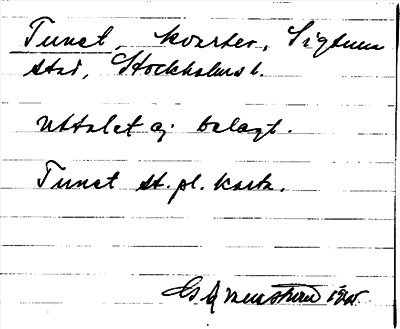 Tunet, kvarter, Sigtuna
stad, Stockholms l.
Uttalet ej belagt.
Tunet st. pl. karta.